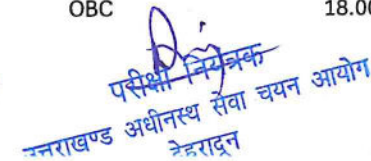 OBC 18.00
परीक्षा नियंत्रक
उत्तराखण्ड अधीनस्थ सेवा चयन आयोग
देहरादून